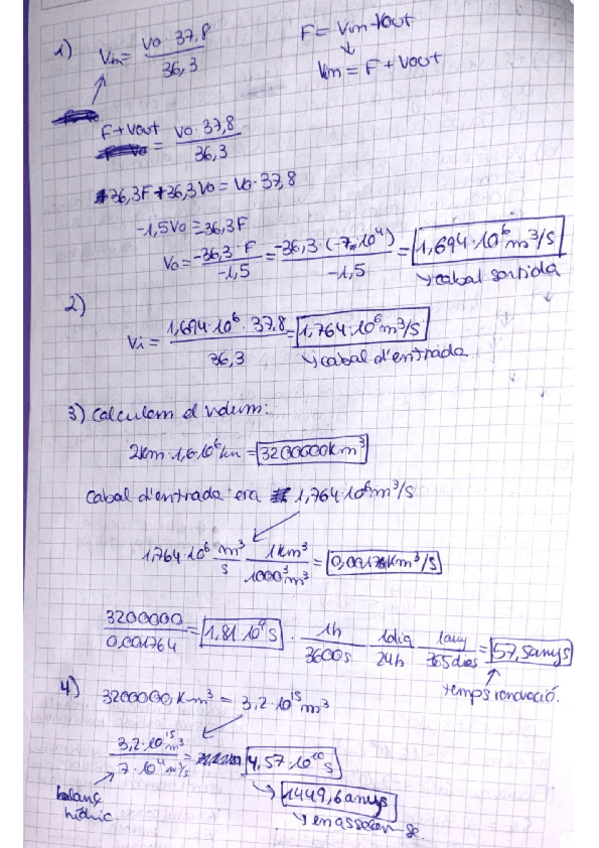 1) Vin = Vo · 37,8 / 36,3
F = Vin - Vout
Vin = F + Vout
F + Vout = Vo · 37,8 / 36,3
36,3F + 36,3Vo = Vo · 37,8
-1,5Vo = 36,3F
Vo = -36,3 · F / -1,5 = -36,3 · (-7 · 10⁴) / -1,5 = 1,694 · 10⁶ m³/s
cabal sortida
2)
Vi = 1,694 · 10⁶ · 37,8 / 36,3 = 1,764 · 10⁶ m³/s
cabal d'entrada
3) Calculam el volum:
2km · 1,6 · 10⁶ km = 3200000 km³
Cabal d'entrada era 1,764 · 10⁶ m³/s
1,764 · 10⁶ m³/s · 1 km³ / 1000³ m³ = 0,00176 km³/s
3200000 / 0,001764 = 1,81 · 10⁹ s · 1h / 3600s · 1dia / 24h · 1any / 365dies = 57,5anys
temps renovació.
4) 3200000 km³ = 3,2 · 10¹⁵ m³
3,2 · 10¹⁵ m³ / 7 · 10⁴ m³/s = 4,57 · 10¹⁰ s
1449,6 anys
balanç
hídric.
en assecar-se.